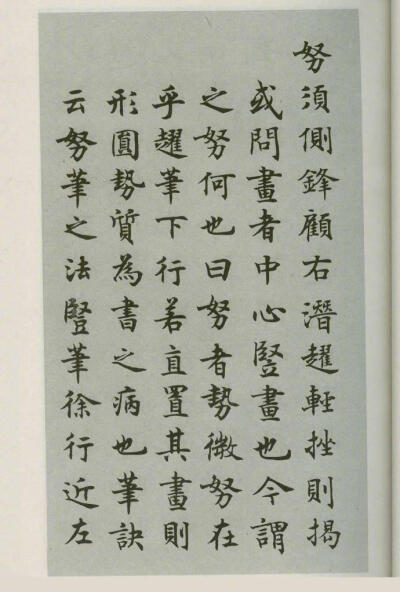 努須側鋒顧右潛趯輕挫則揭
或問畫者中心竪畫也今謂
之努何也曰努者勢微努在
乎趯筆下行若直置其畫則
形圓勢質為書之病也筆訣
云努筆之法竪筆徐行近左